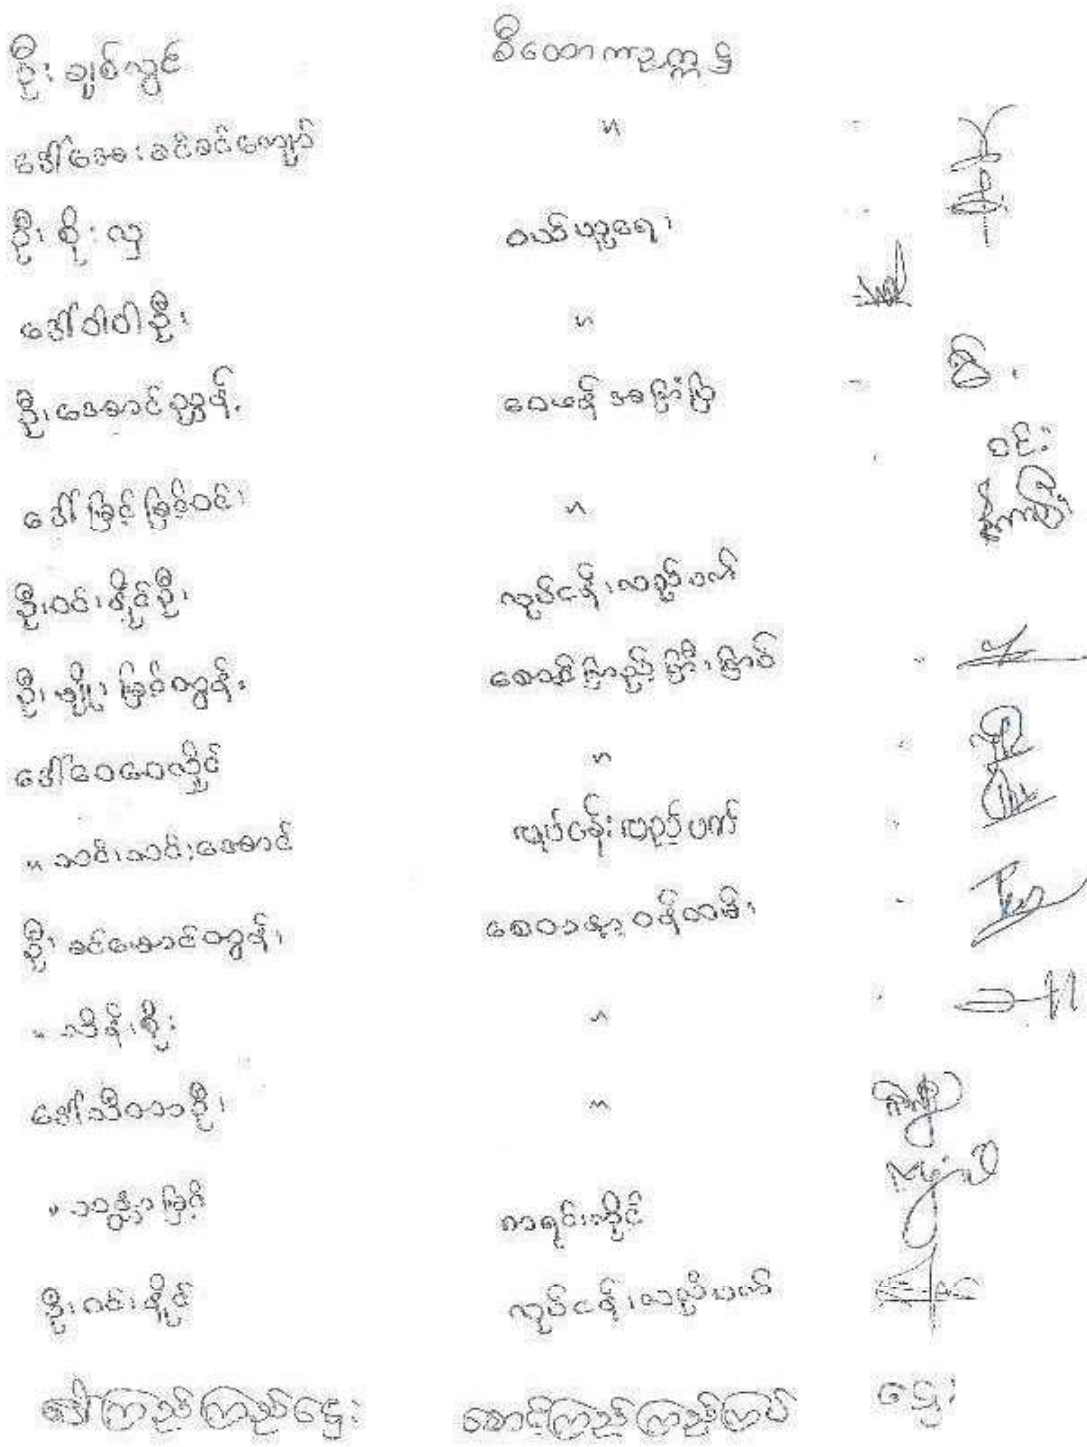 ဦးချစ်လွင် စီတောကဥက္ကဋ္ဌ
ဒေါ်အေးခင်ခင်ကျော် "
ဦးစိုးလှ ဝယ်ယူရေး
ဒေါ်ဝါဝါဦး "
ဦးအောင်ညွန့် ဝေဖန်အကြံပြု
ဝင်း
ဒေါ်မြင့်မြင့်ဝင်း "
ဦးဝင်းနိုင်ဦး လုပ်ငန်းလည်ပတ်
ဦးမျိုးမြင့်ထွန်း စောင့်ကြည့်ကြီးကြပ်
ဒေါ်ဝေဝေလှိုင် "
" သင်းသင်းအောင် လုပ်ငန်းလည်ပတ်
ဦးခင်မောင်ထွန်း စေတနာ့ဝန်ထမ်း
" သိန်းစိုး "
ဒေါ်သီတာဦး "
" သန္တာမြင့် စာရင်းကိုင်
ဦးဝင်းနိုင် လုပ်ငန်းလည်ပတ်
ဒေါ်ကြည်ကြည်ဌေး စောင့်ကြည့်ကြည့်ကြပ် ဌေး